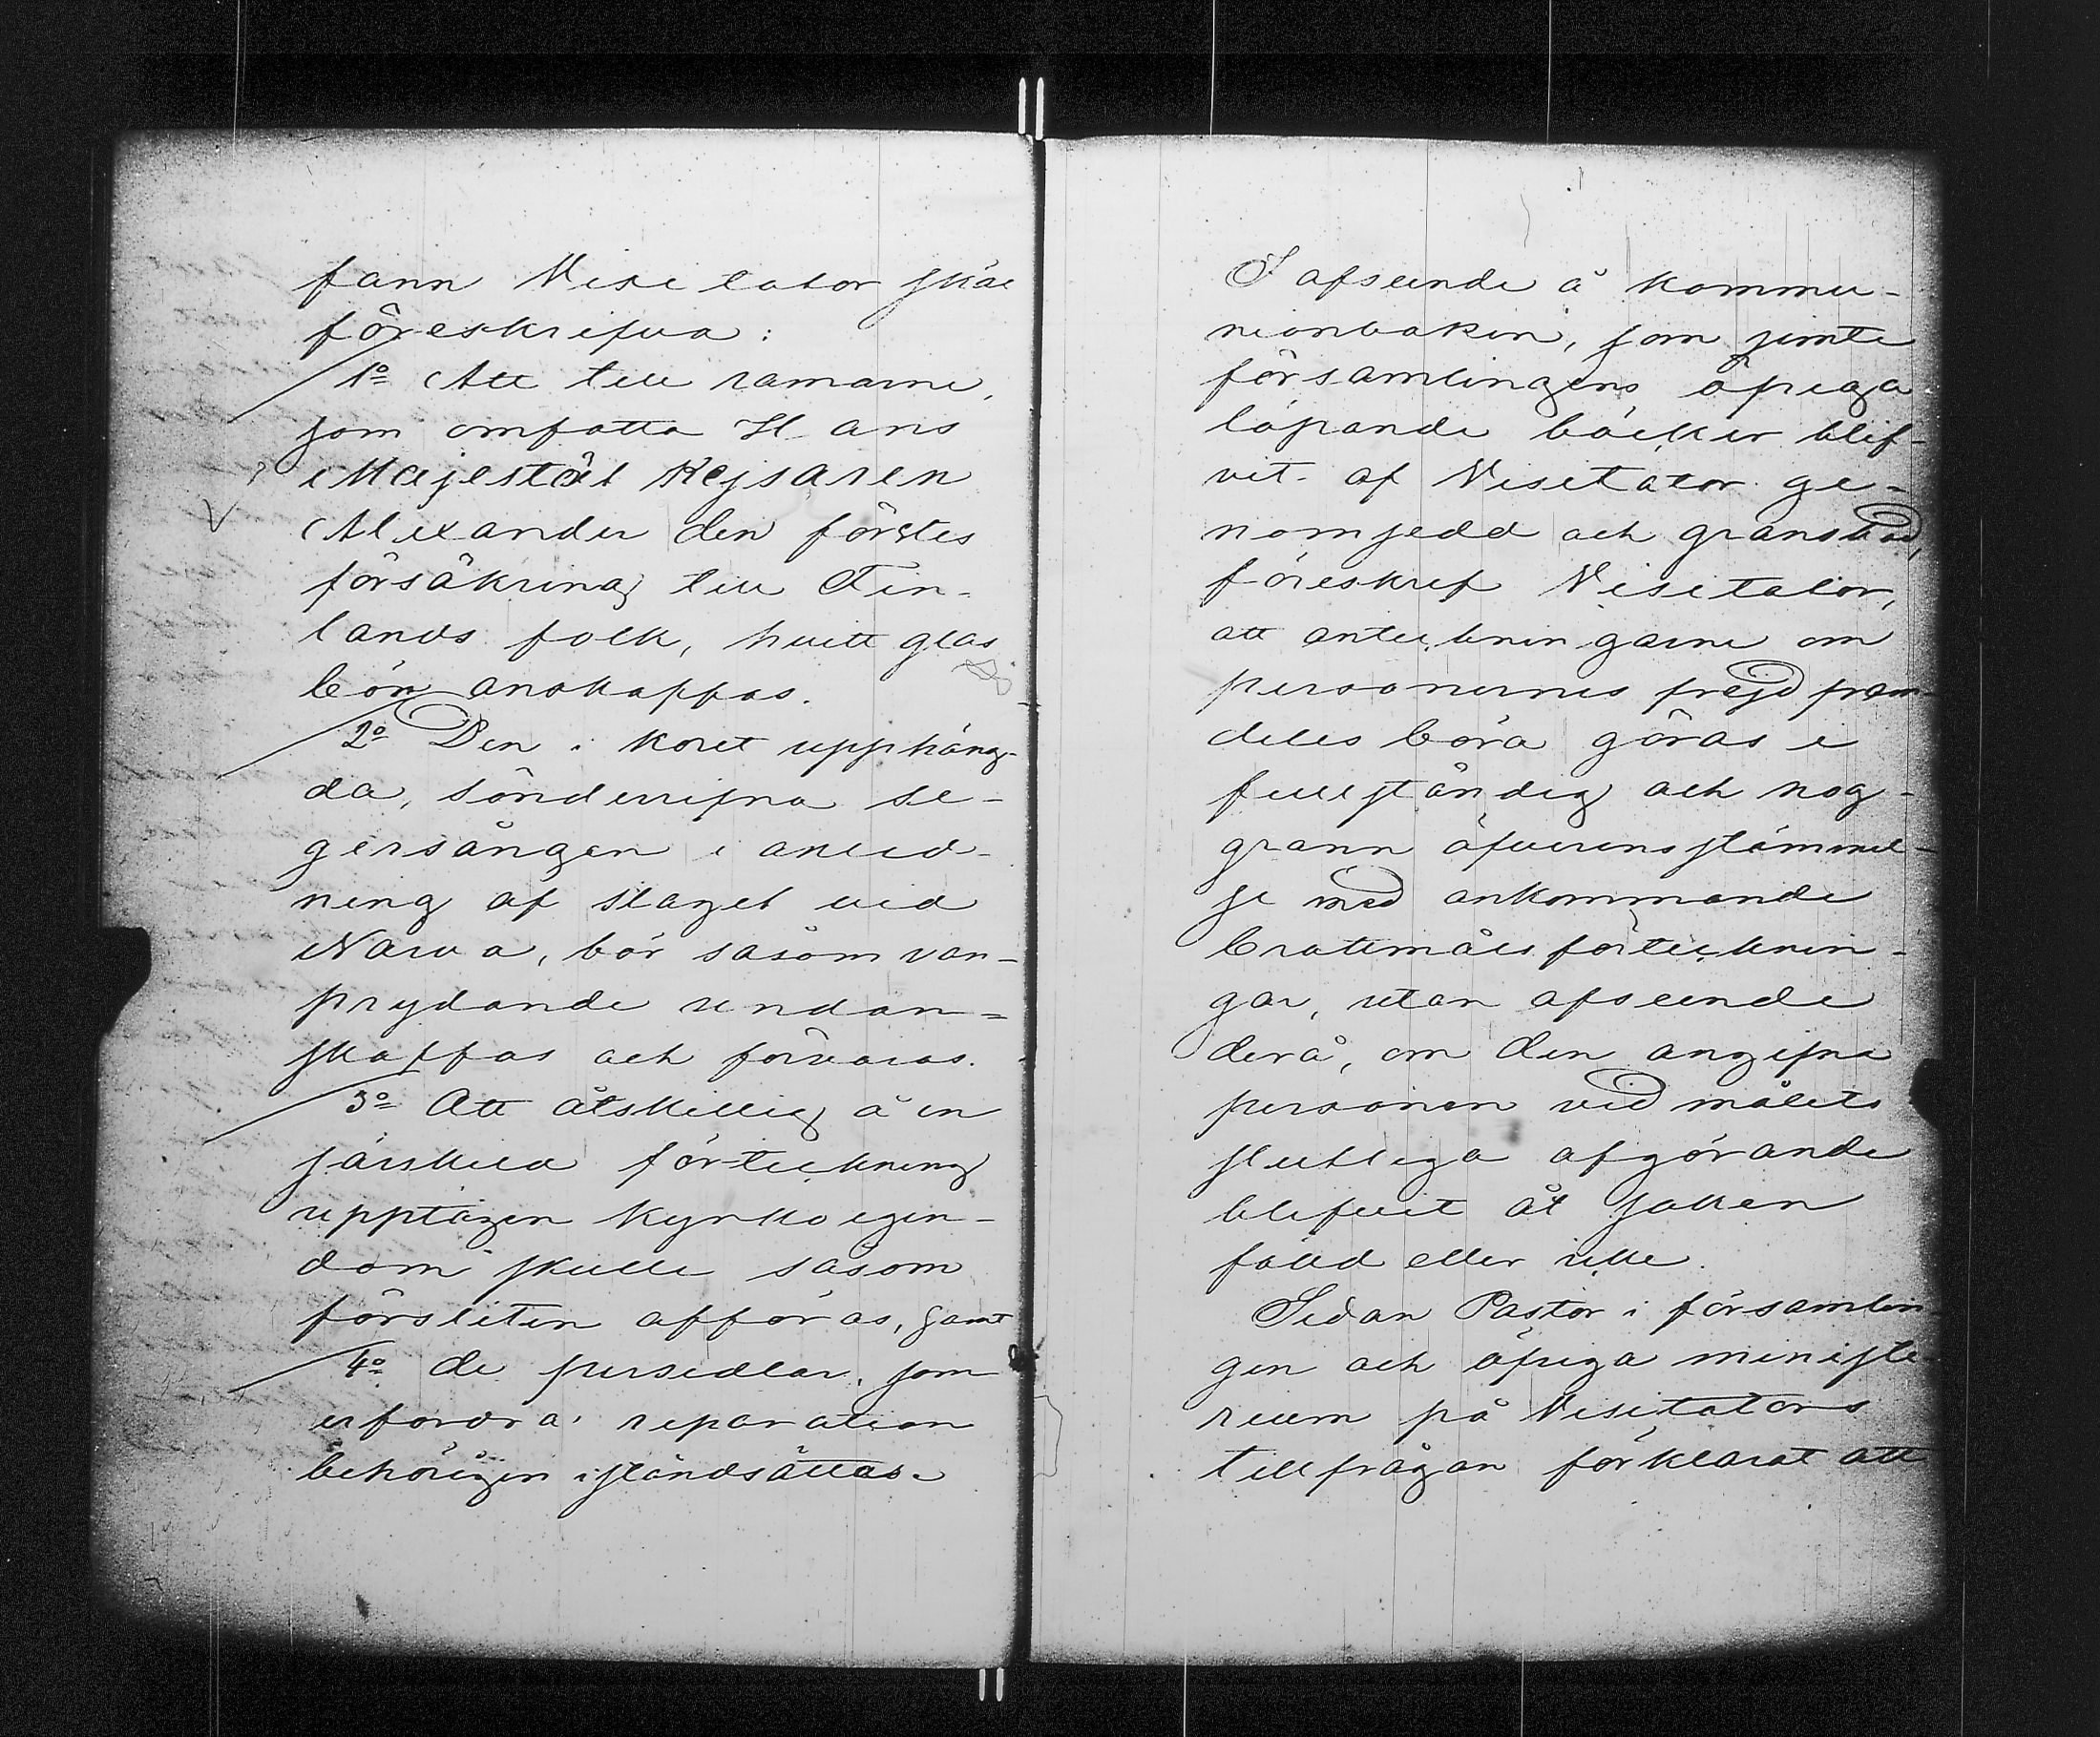 fann Visitator skäl
föreskrifva:
1º Att till ramarne,
som omfatta Hans
Majestät Kejsaren
Alexander den förstes
försäkring till Fin-
lands folk, hvitt glas
bör anskaffas.
2º Den i koret upphäng-
da, sönderrifna se-
gersången i anled-
ning af slaget vid
Narva, bör såsom van-
prydande undan-
skaffas och förvaras.
3º Att åtskillig å en
särskild förteckning
upptagen kyrkoegen-
dom skulle såsom
försliten afföras, samt
4º de persedlar, som
erfordra reparation
behörigen iståndsättas.
I afseende å kommu-
nionboken, som jemte
församlingens öfriga
löpande böcker blif-
vit af Visitator ge-
nomsedd och granskad,
föreskref Visitator,
att anteckningarne om
personernes frejd fram-
deles böra göras i
fullständig och nog-
grann öfverensstämmel-
se med ankommande
brottmålsförtecknin-
gar, utan afseende
derå, om den angifne
personen vid målets
slutliga afgörande
blifvit åt saken
fälld eller icke.
Sedan Pastor i församlin-
gen och öfriga ministe-
rium på Visitators
tillfrågan förklarat att